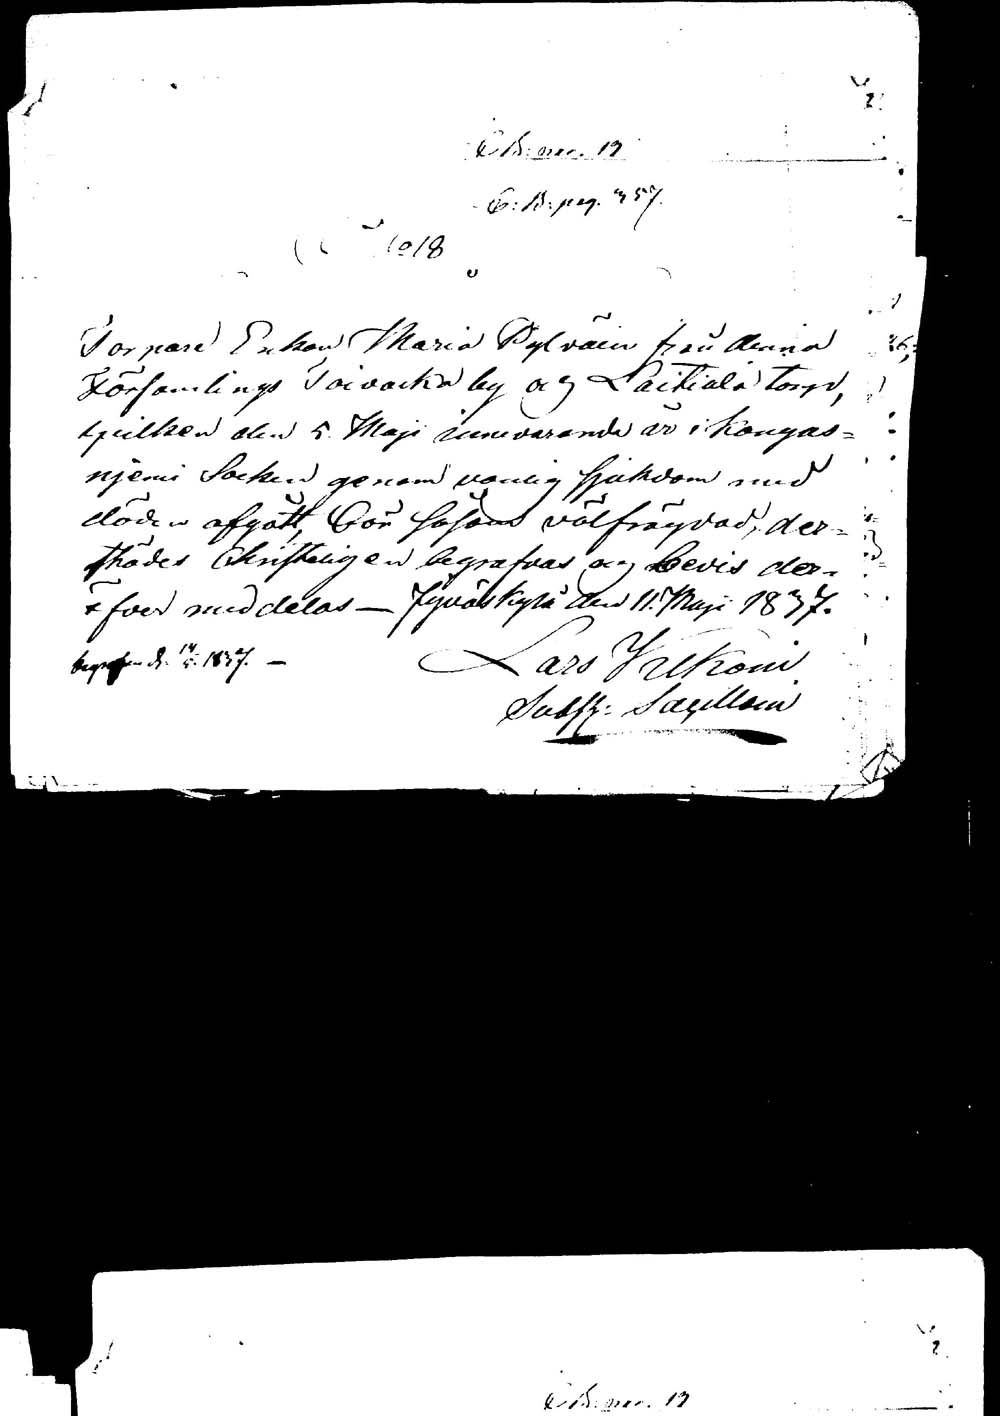 C. B: pag. 357.
Torpare Enkan Maria Pylväin från denna
Församlings Toivacka by och Laitiala torp,
hvilken den 5. Maji innevarande år i Kangas=
njemi Socken genom vanlig sjukdom med
döden afgått, bör såsom välfrägdad, der=
städes Christeligen begrafvas och bevis der=
öfver meddelas — Jyväskylä den 11. Maji 1837.
begrafen d. 14/5. 1837. —
Lars